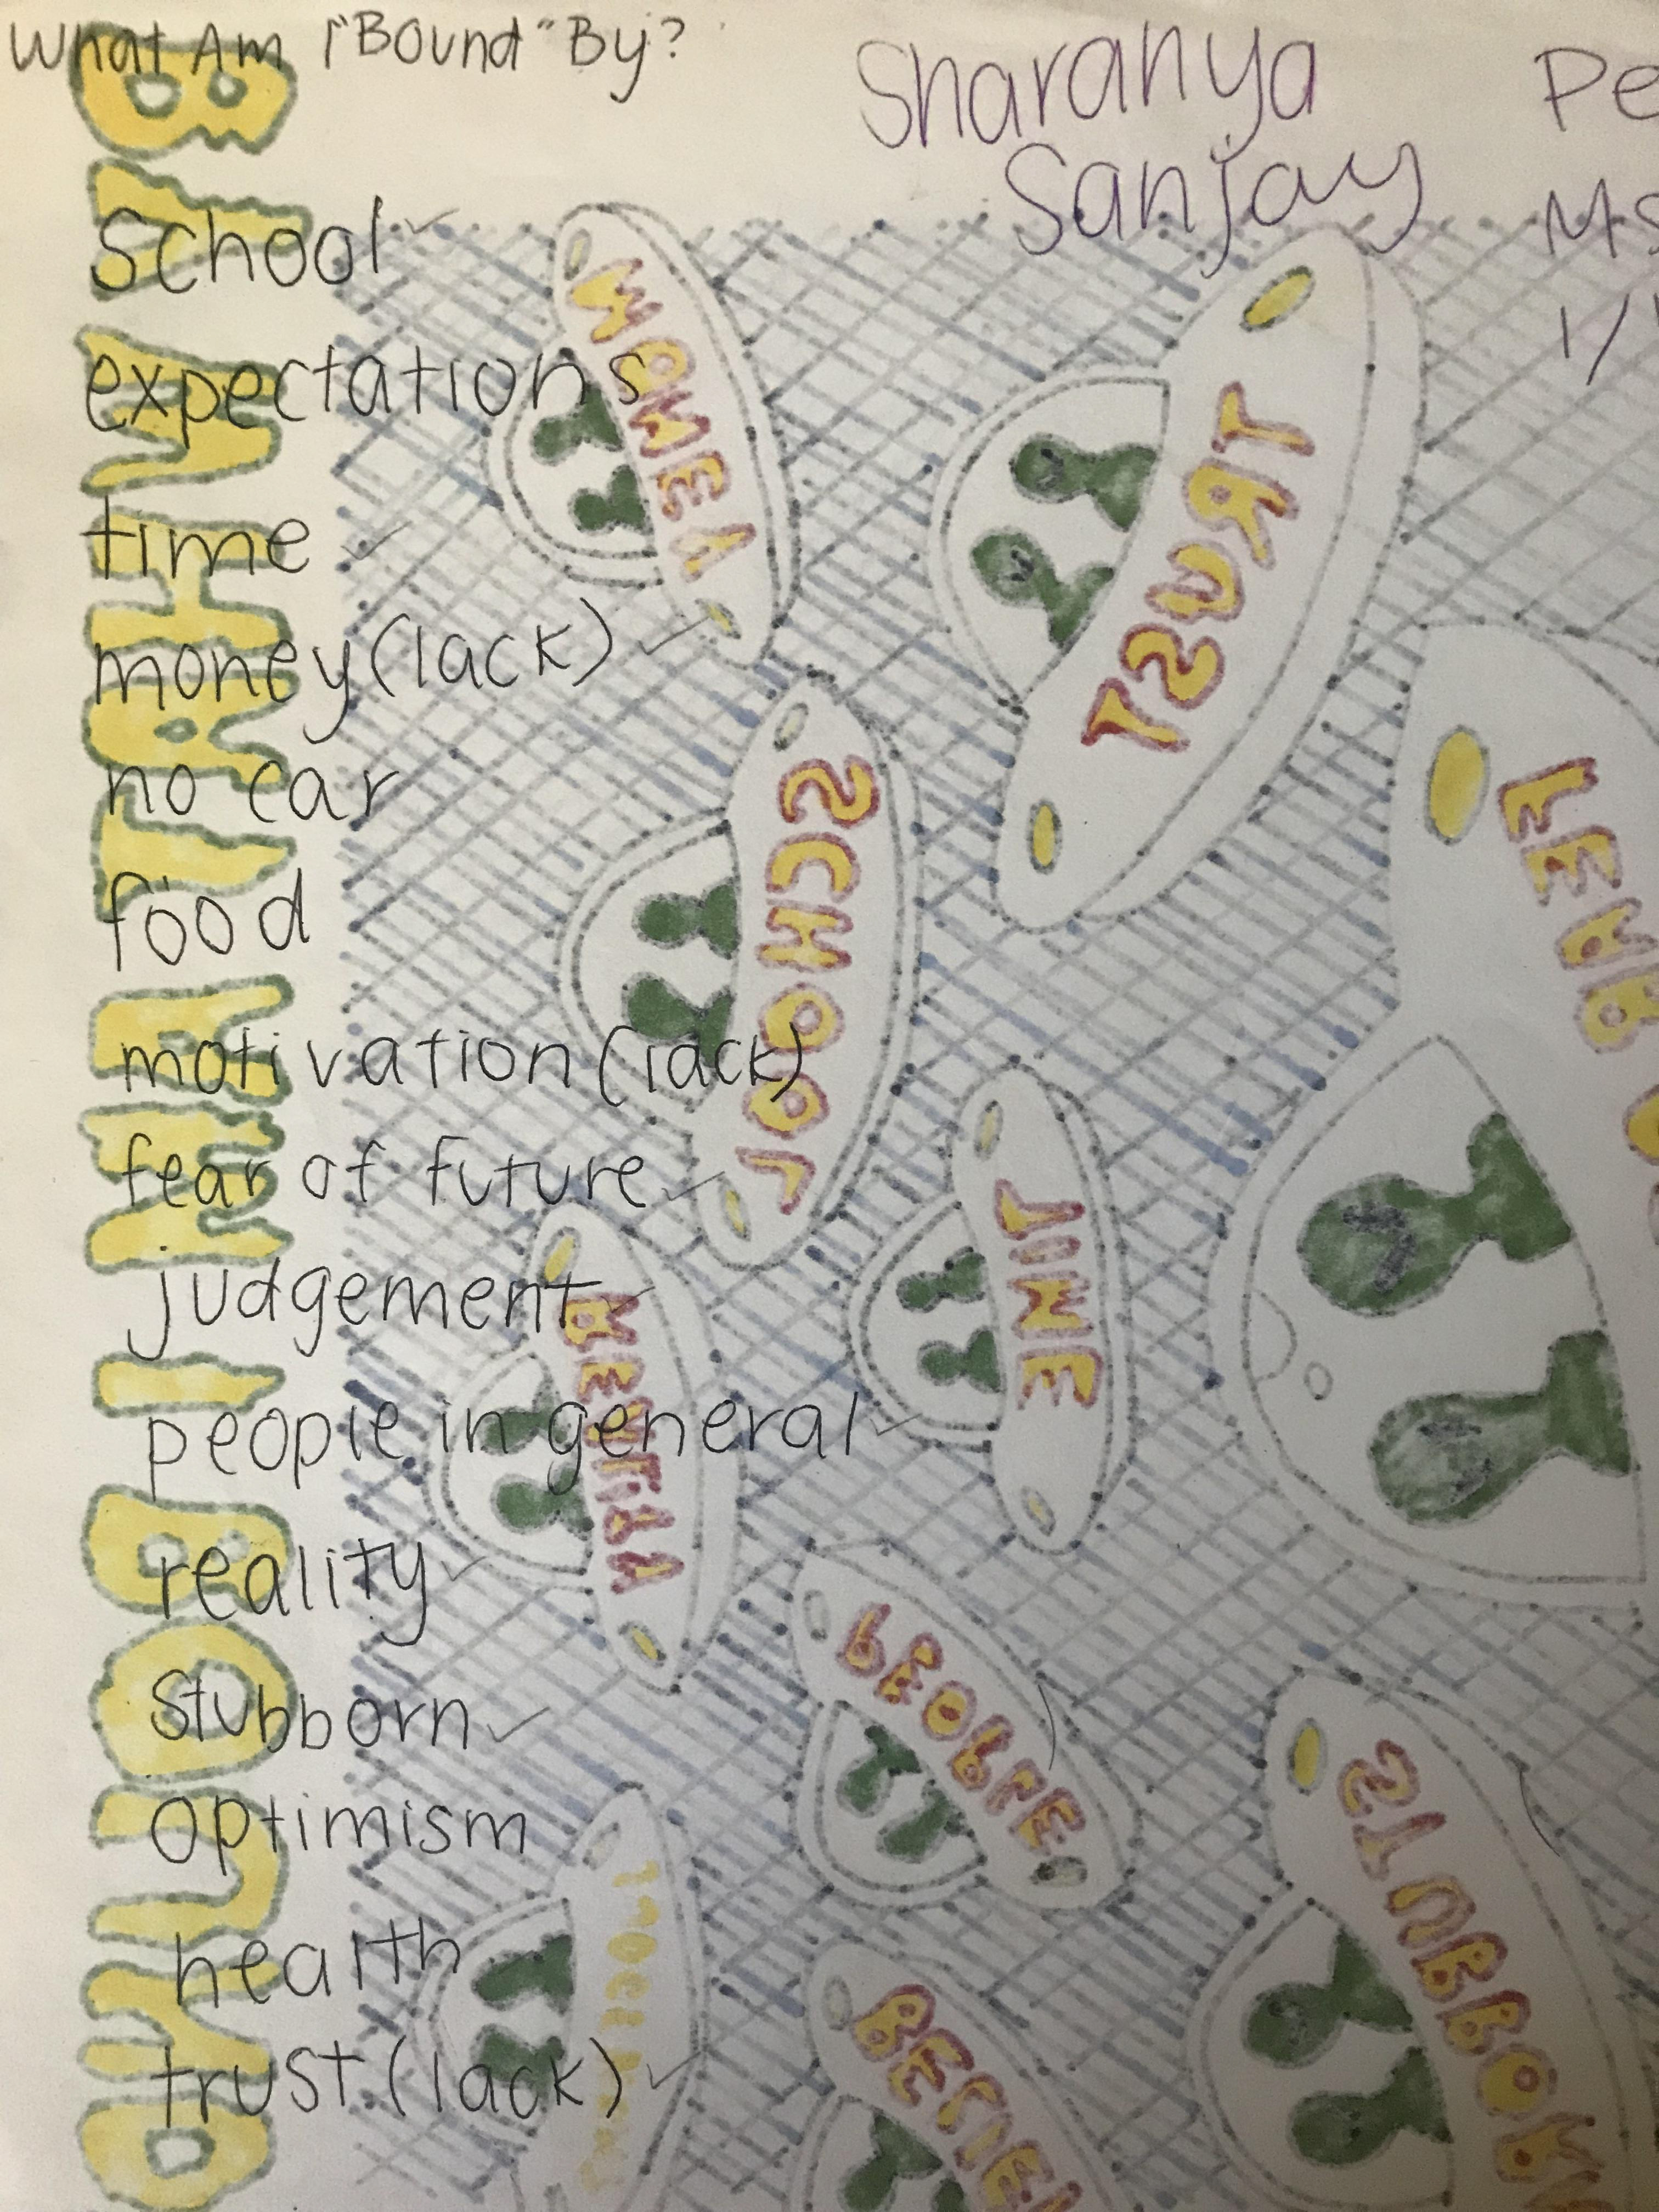 What Am I "Bound" By?
Sharanya
Sanjay
school
expectations
time
money (lack)
no car
food
motivation (lack)
fear of future
judgement
people in general
reality
stubborn
optimism
health
trust (lack)
MONEY
TRUST
SCHOOL
FEAR
TIME
REALITY
PEOPLE